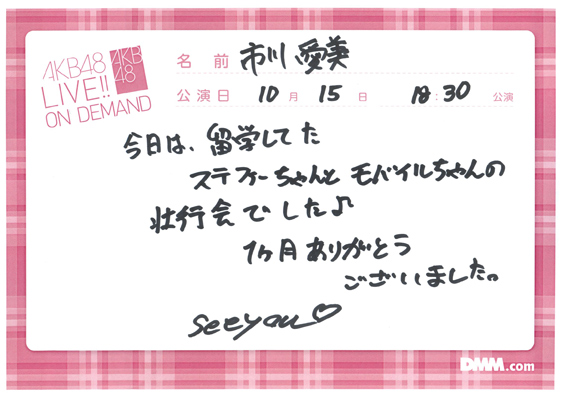 AKB48
LIVE!!
ON DEMAND
AKB
48
名前 市川愛美
公演日 10月 15日 18:30 公演
今日は、留学してた
ステファーちゃんと モバイルちゃんの
壮行会でした♪
1ヶ月ありがとう
ございました。
seeyou♡
DMM.com